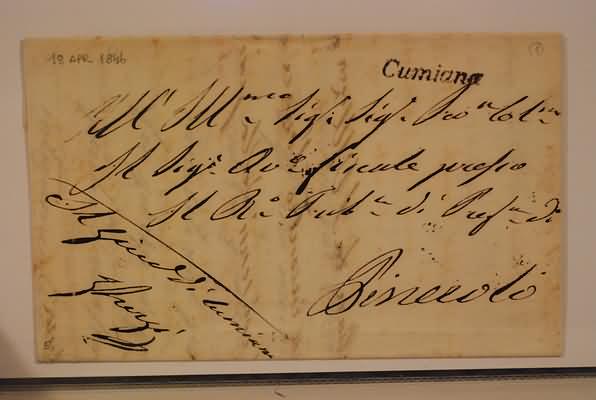 18 APR 1846
Cumiana
All' Ill.mo Sig.r Sig.r Pro.n Col.mo
Il Sig.r Av.o fiscale presso
Il R.o Trib.le di Pref.ra di
Pinerolo
Il Giud.e di Cumiana